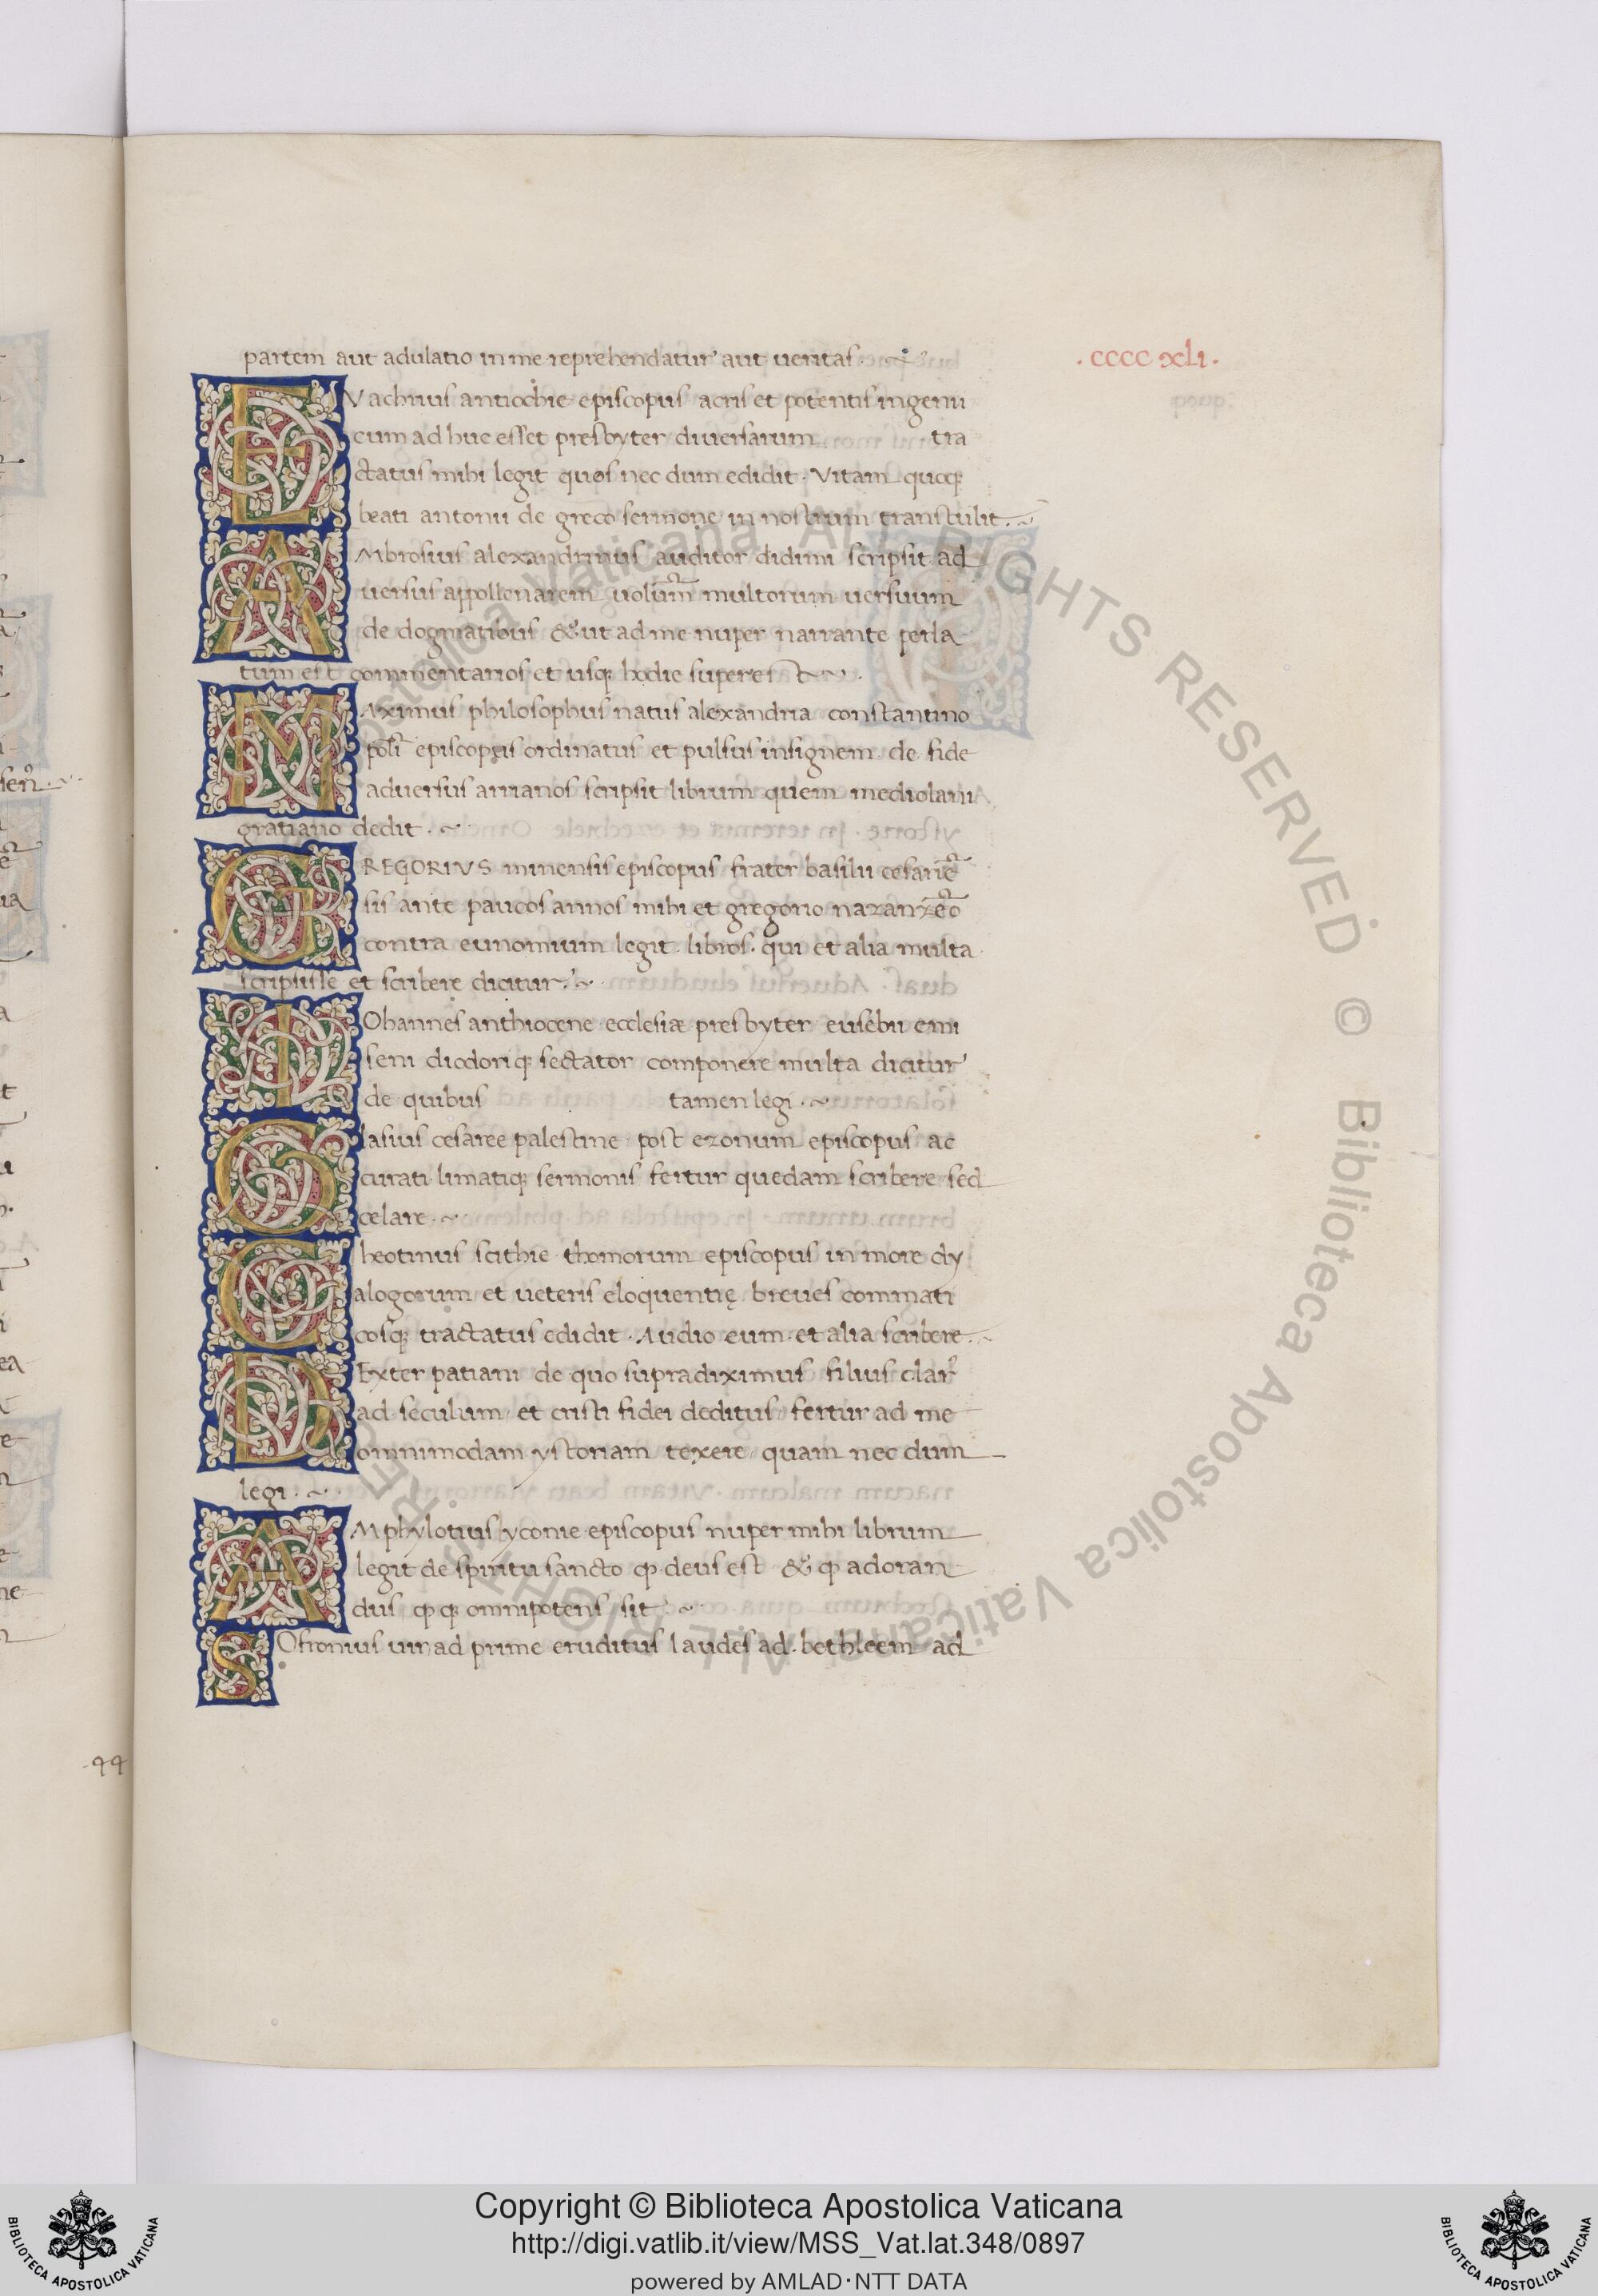 partem aut adulatio in me reprehendatur aut ueritas.
.cccc xli.
EVachrius antiochie episcopus acris et potentis ingenii
cum ad huc esset presbyter diuersarum tra
ctatus mihi legit quos nec dum edidit. Vitam quoqꝫ
beati antonii de greco sermone in nostrum transtulit.~
AMbrosius alexandrinus auditor didimi scripsit ad
uersus appollenarem uolum̄ multorum uersuum
de dogmatibus & ut ad me nuper narrante perla
tum est commentarios et usqꝫ hodie superest~~.
MAximus philosophus natus alexandria constantino
poli episcopus ordinatus et pulsus insignem de fide
aduersus arrianos scripsit librum quem mediolani
gratiano dedit.~
GREGORIVS minensis episcopus frater basilii cesariē
sis ante paucos annos mihi et gregorio nazanzēo
contra eunomium legit libros. qui et alia multa
scripsisse et scribere dicitur.~
IOhannes anthiocene ecclesiæ presbyter eusebii emi
seni diodoriqꝫ sectator componere multa dicitur
de quibus tamen legi.~
Glasius cesaree palestine post ezonum episcopus ac
curati limatiqꝫ sermonis fertur quedam scribere sed
celare.~
Cheotinus scithie thomorum episcopus in more dy
alogorum et ueteris eloquentię breues commati
cosqꝫ tractatus edidit. Audio eum et alia scribere.~
DExter patiani de quo supra diximus filius clar᾽
ad seculum et cristi fidei deditus fertur ad me
omnimodam ystoriam texere quam nec dum
legi.~
AMphylotius yconie episcopus nuper mihi librum
legit de spiritu sancto ꝙ deus est & ꝙ adoran
dus ꝙqꝫ omnipotens sit.~
SOfronius uir ad prime eruditus laudes ad bethleem ad
-44
Copyright © Biblioteca Apostolica Vaticana
http://digi.vatlib.it/view/MSS_Vat.lat.348/0897
powered by AMLAD·NTT DATA
BIBLIOTECA APOSTOLICA VATICANA
BIBLIOTECA APOSTOLICA VATICANA